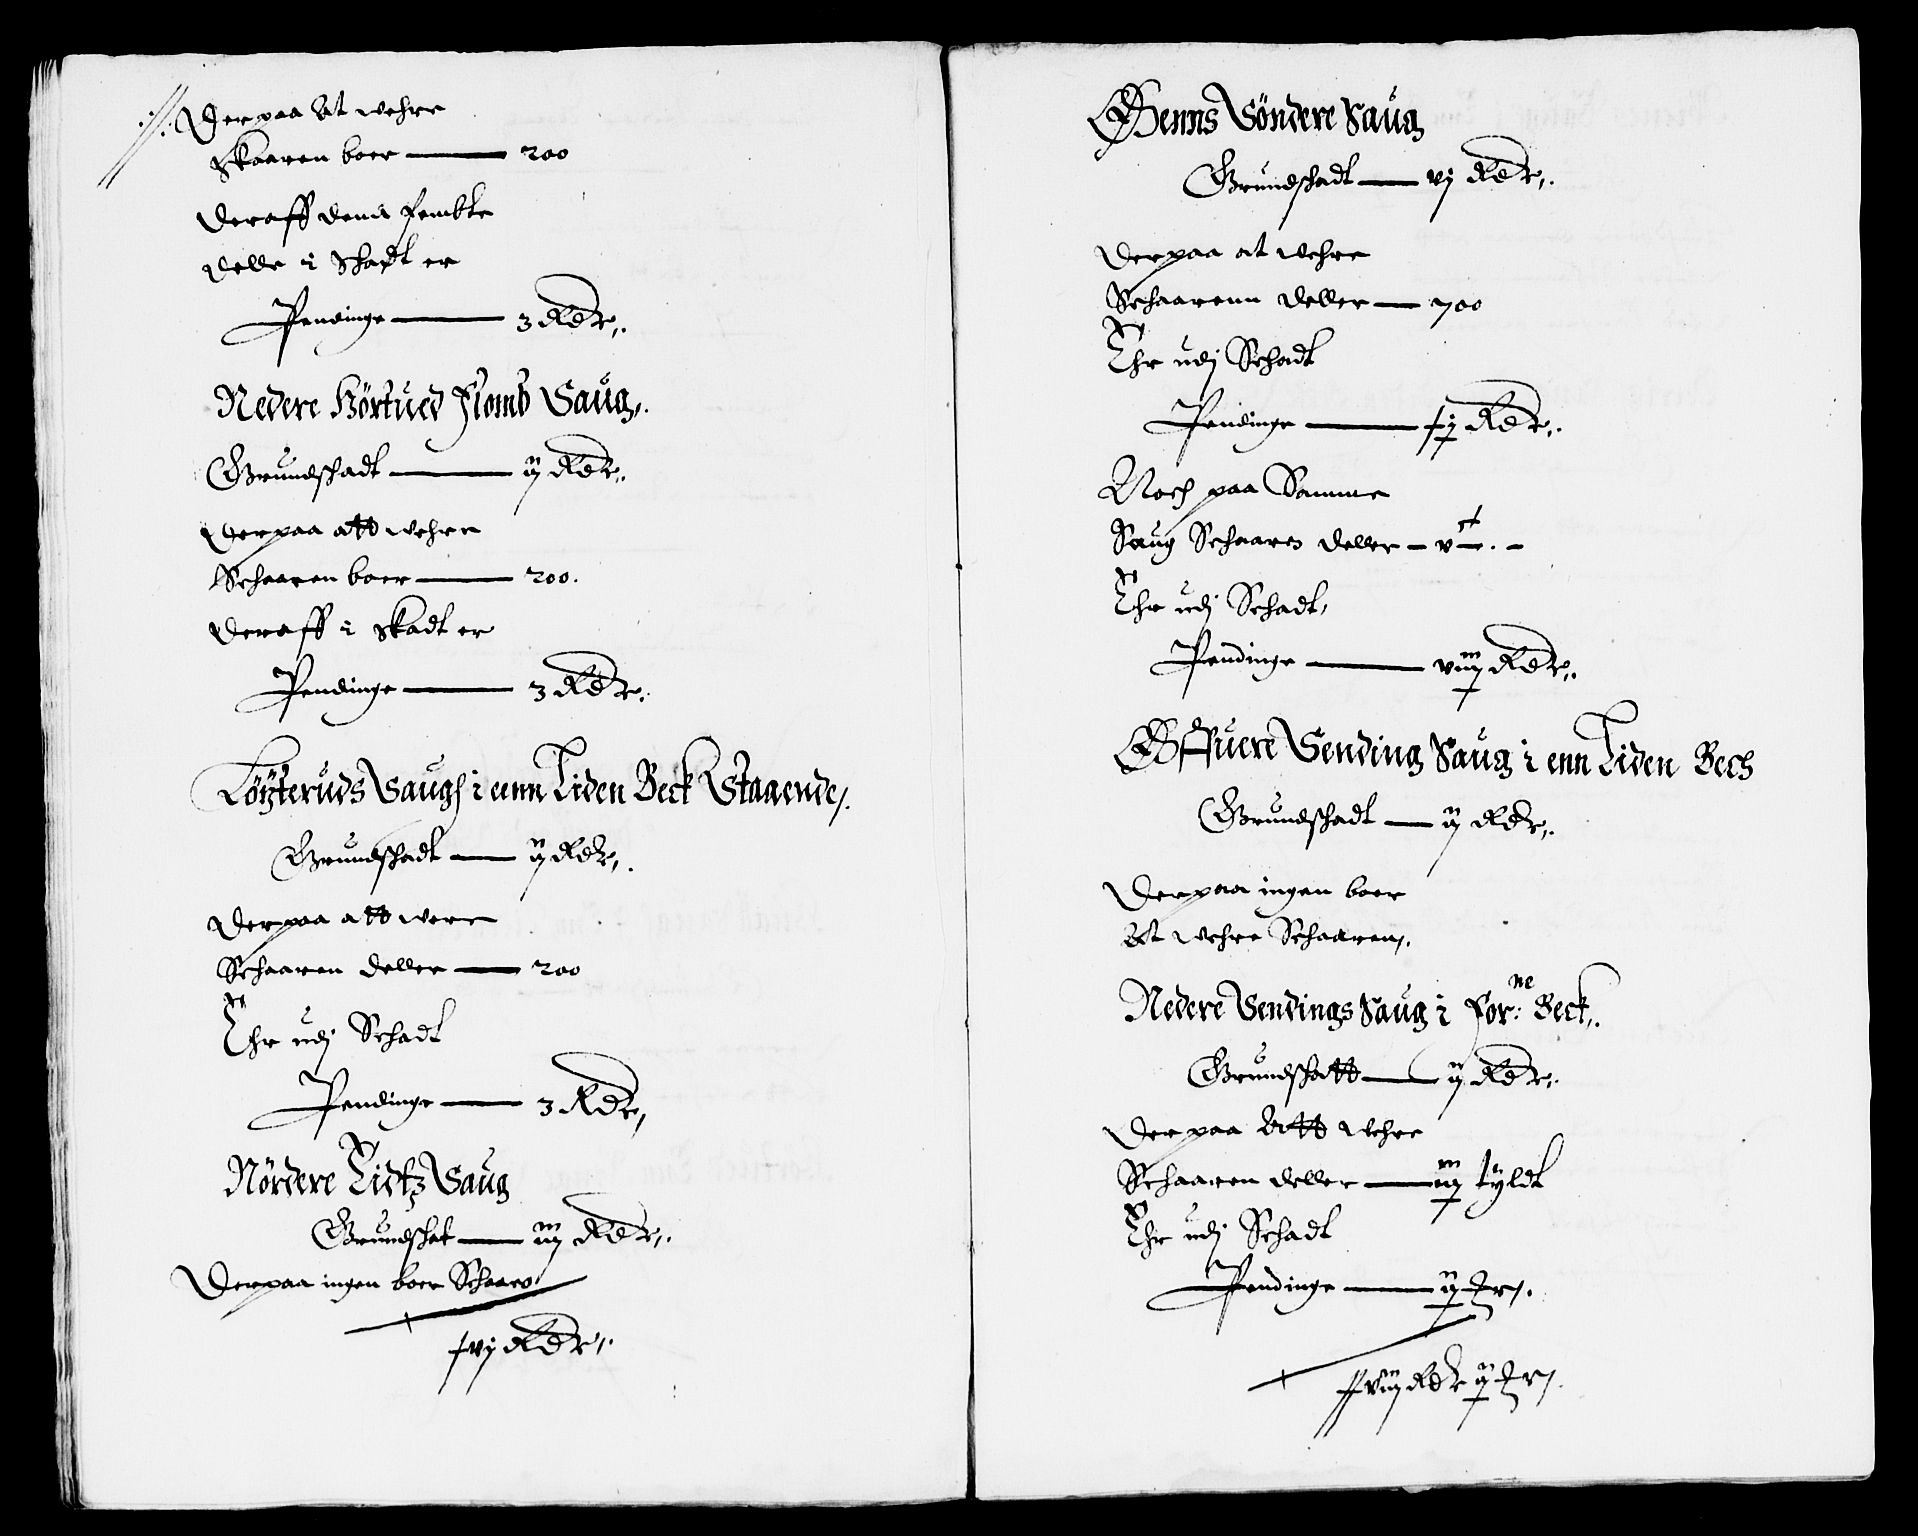 Derpaa At wehre
Skaaren boer — 200
Deraff denn fembte
delle i Skat er
Pendinge — 3 Rdr.
Nedere Hörtued flomb Saug.
Grundschadt — ij Rdr.
Derpaa att wehre
Schaaren boer — 200.
Deraff i Skadt er
Pendinge — 3 Rdr.
Töÿteruds Saugh i eenn Liden Beck Staaende.
Grundschadt — ij Rdr.
Derpaa att were
Schaaren deller — 200
Ehr udj Schadt
Pendinge — 3 Rdr.
Nördere Saug
Grundschat — iij Rdr.
Derpaa ingen boer Schaaren
xvj Rdr.
Söndere Saug
Grundschadt — vj Rdr.
Derpaa at wehre
Schaarenn deller — 700
Ehr udj Schadt
Pendinge — Rdr.
Noch paa Samme
Saug Schaaren deller — vc. —
Ehr udj Schadt
Pendinge — Rdr.
Öffuere Sending Saug i enn Liden Bech
Grundschadt — ij Rdr.
Derpaa ingen boer
At wehre Schaaren.
Nedere Sendings Saug i for:ne Beck.
Grundschatt — ij Rdr.
Derpaa Att wehre
Schaaren deller — tyldt
Ehr udj Schadt
Pendinge — ort.
Rdr ort.